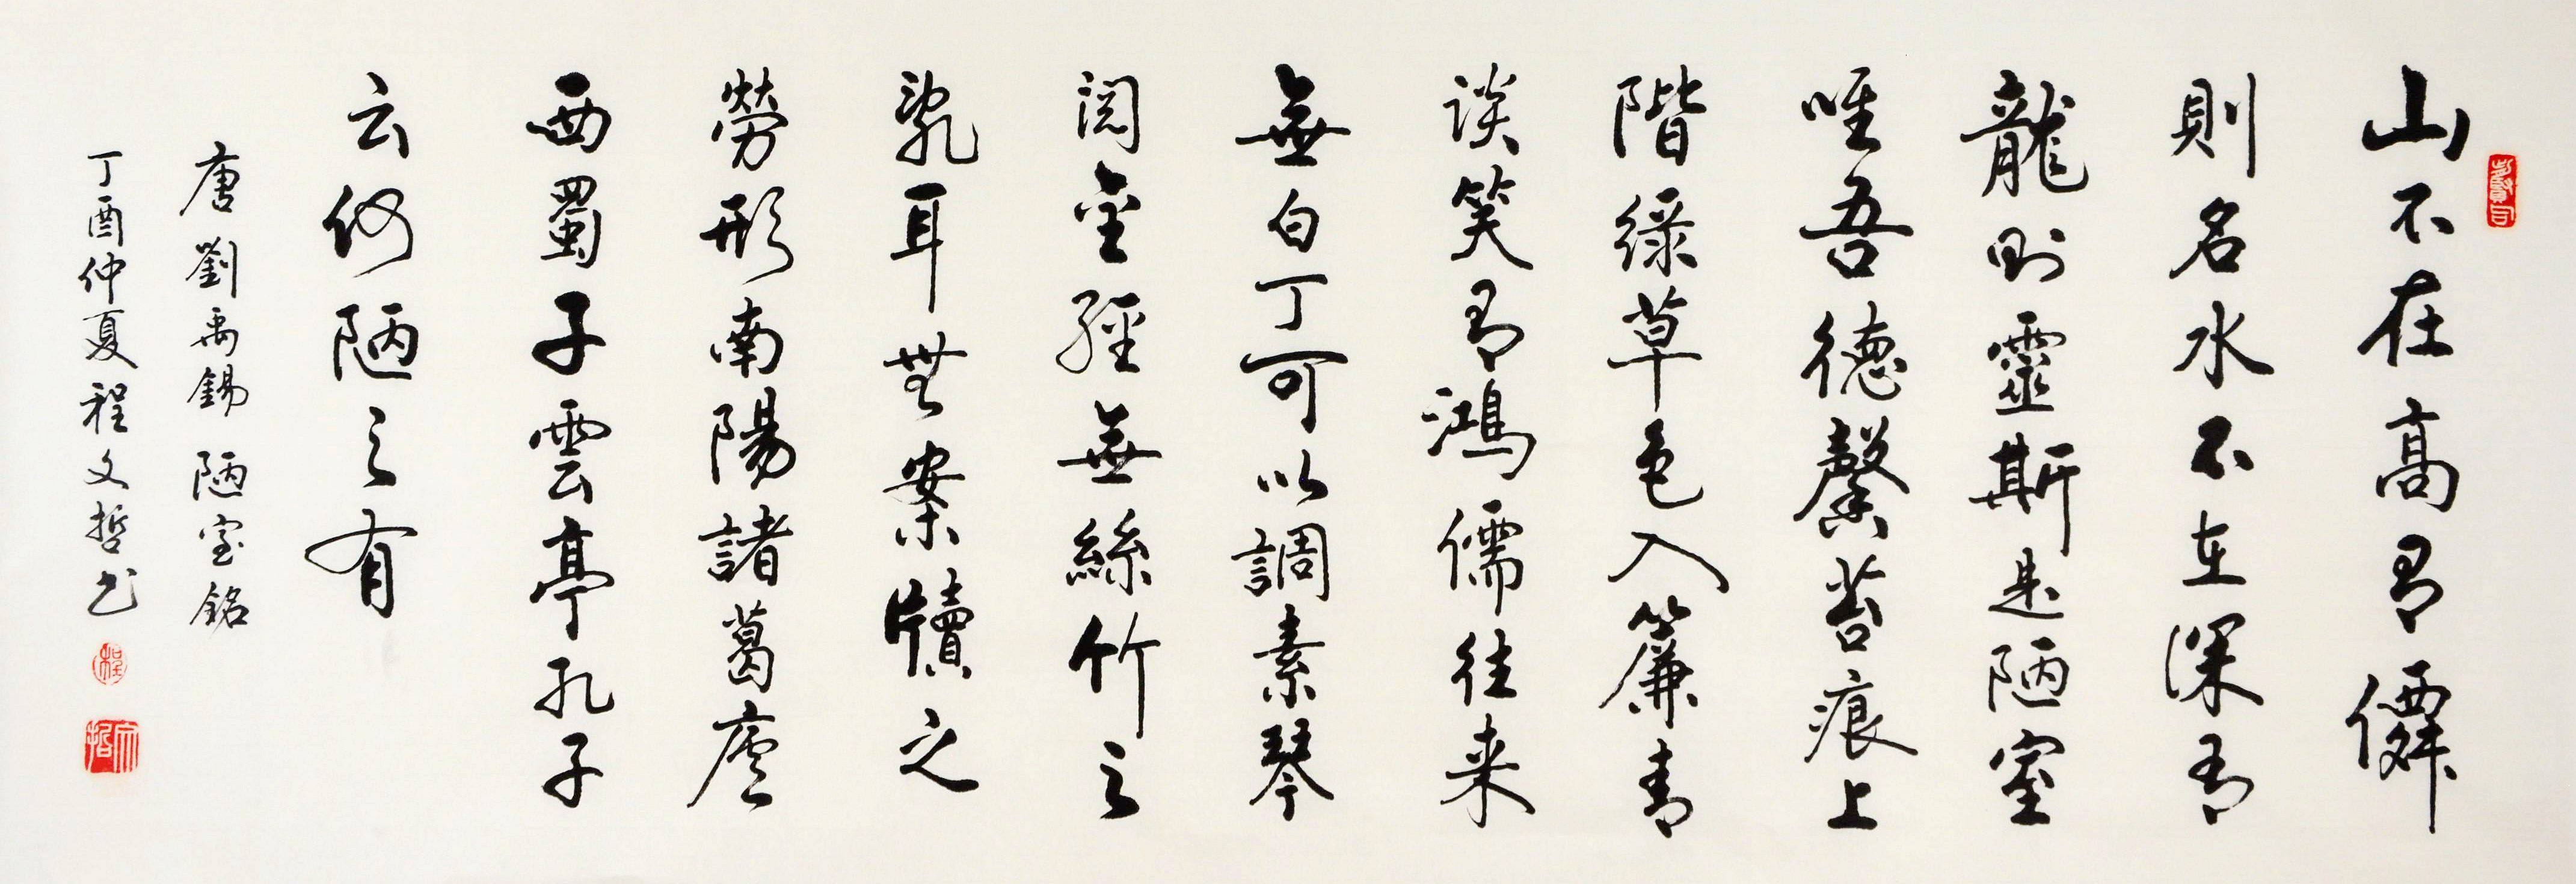 山不在高有僊
則名水不在深有
龍則靈斯是陋室
唯吾德馨苔痕上
階緑草色入簾青
談笑有鴻儒往来
無白丁可以調素琴
閲金經無絲竹之
亂耳無案牘之
勞形南陽諸葛廬
西蜀子雲亭孔子
云何陋之有
唐劉禹錫陋室銘
丁酉仲夏程文哲书
程
文哲